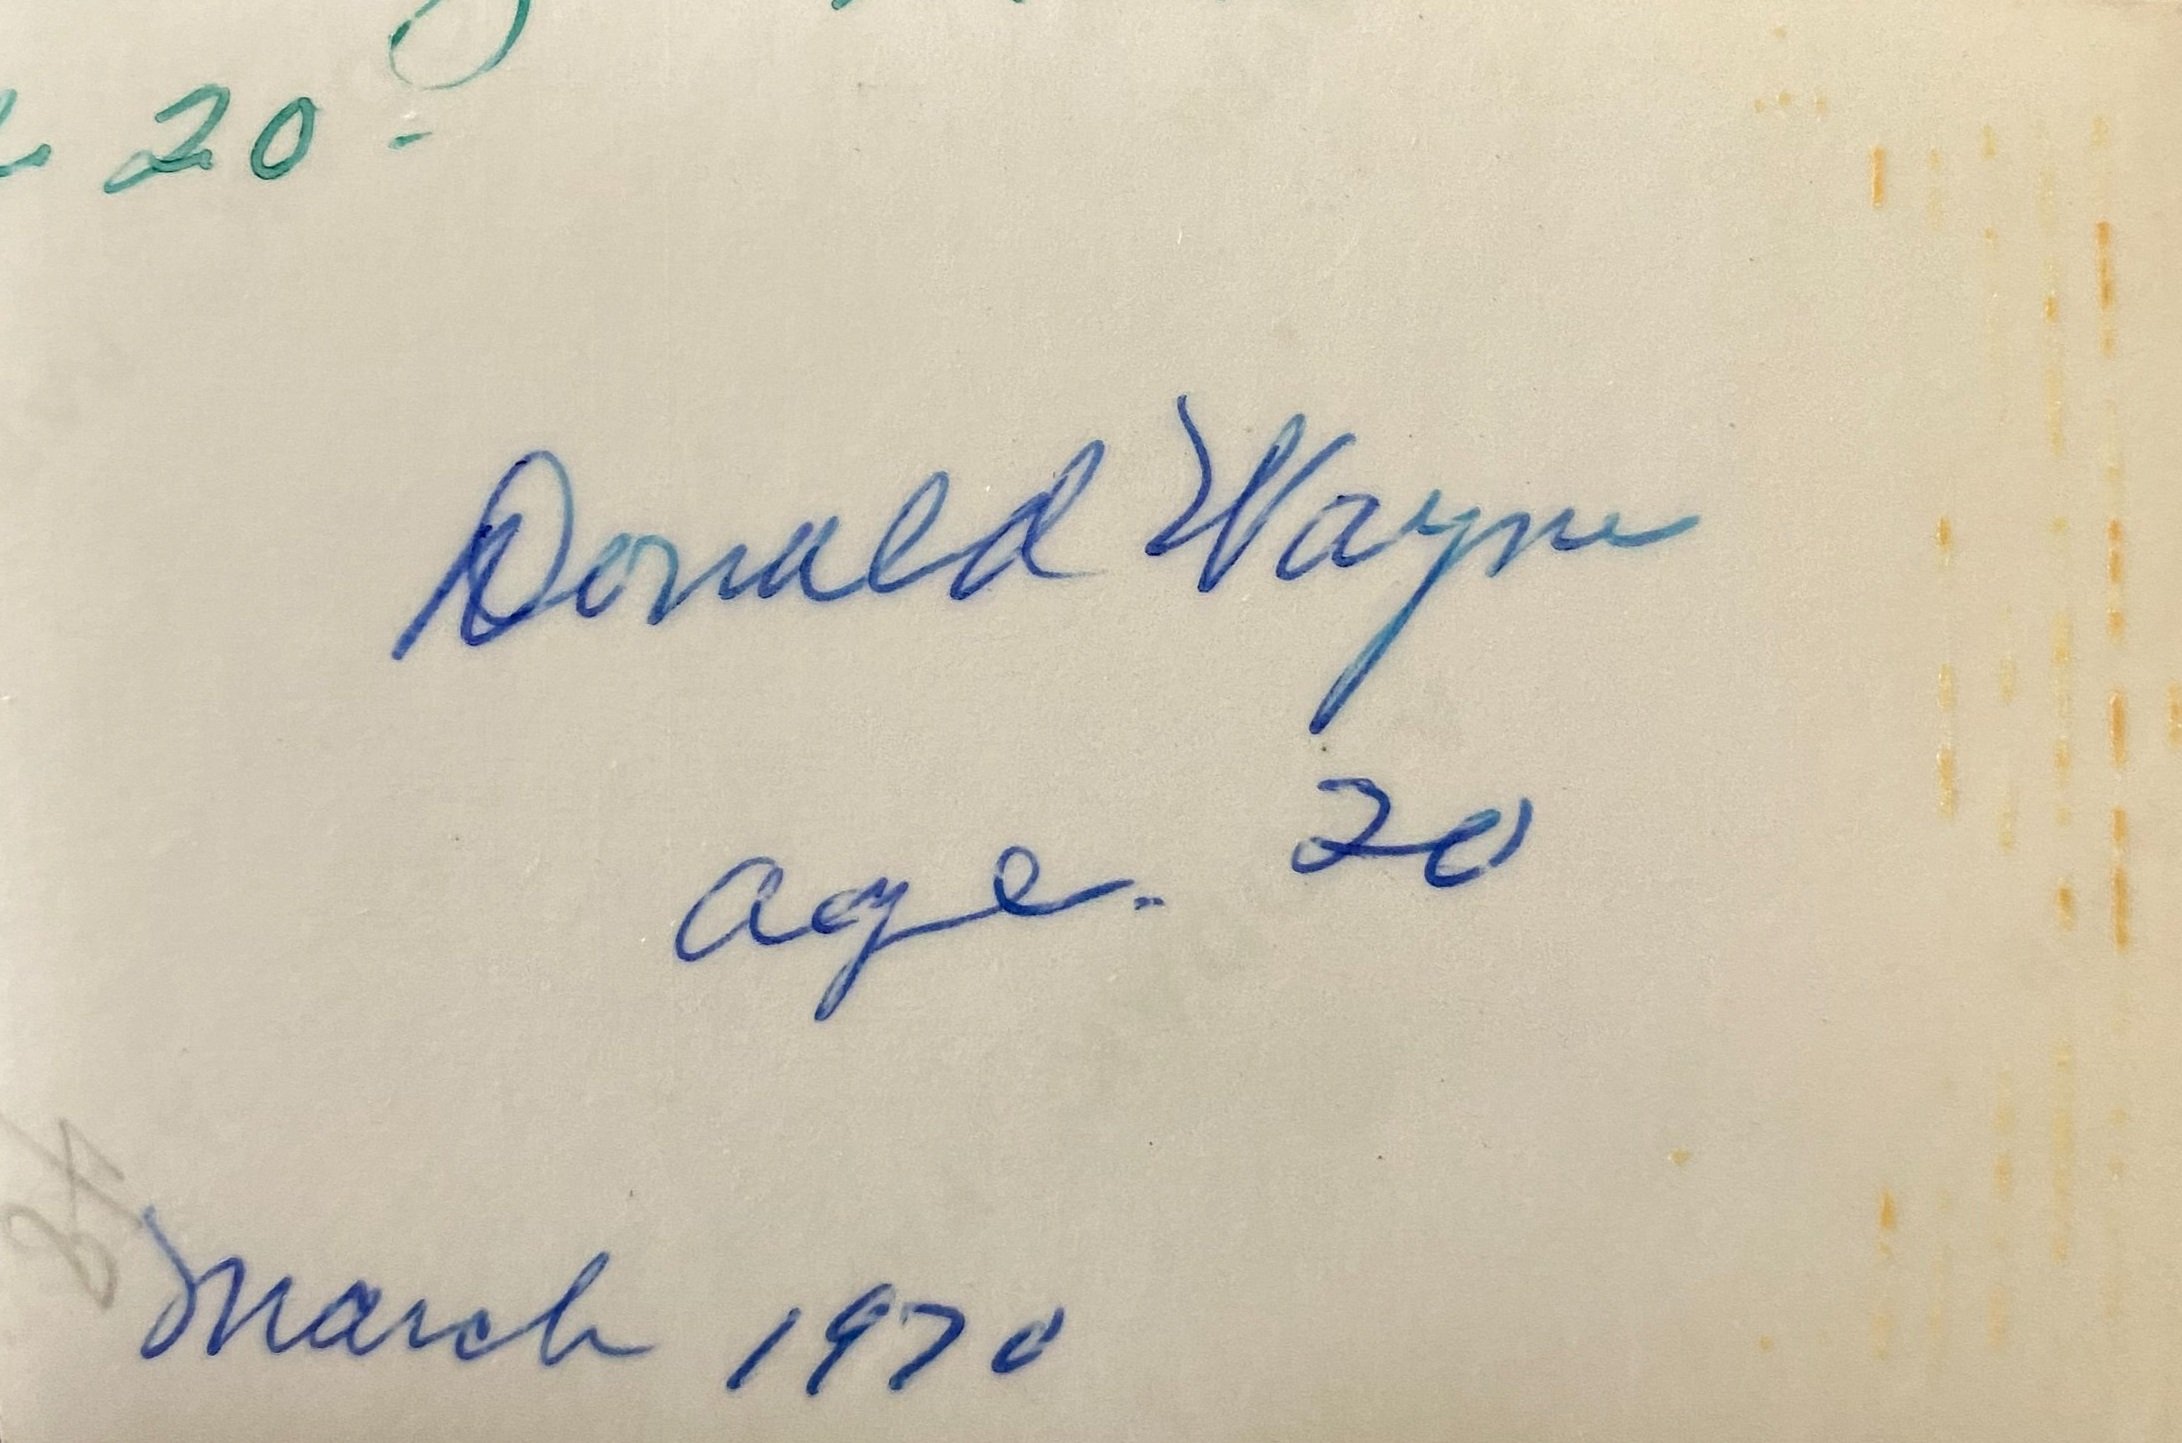 20-
Donald Wayne
age. 20
March 1970